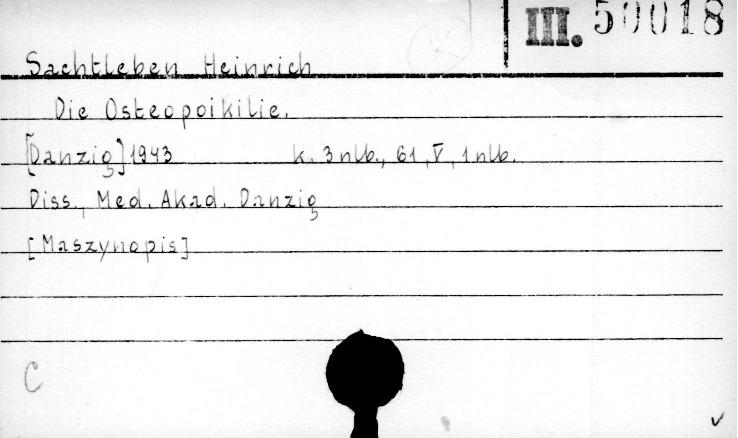 III. 50018
K
Sachtleben Heinrich
Die Osteopoikilie.
[Danzig] 1943 k. 3 nlb., 61, V, 1 nlb.
Diss., Med. Akad. Danzig
[Maszynopis]
C